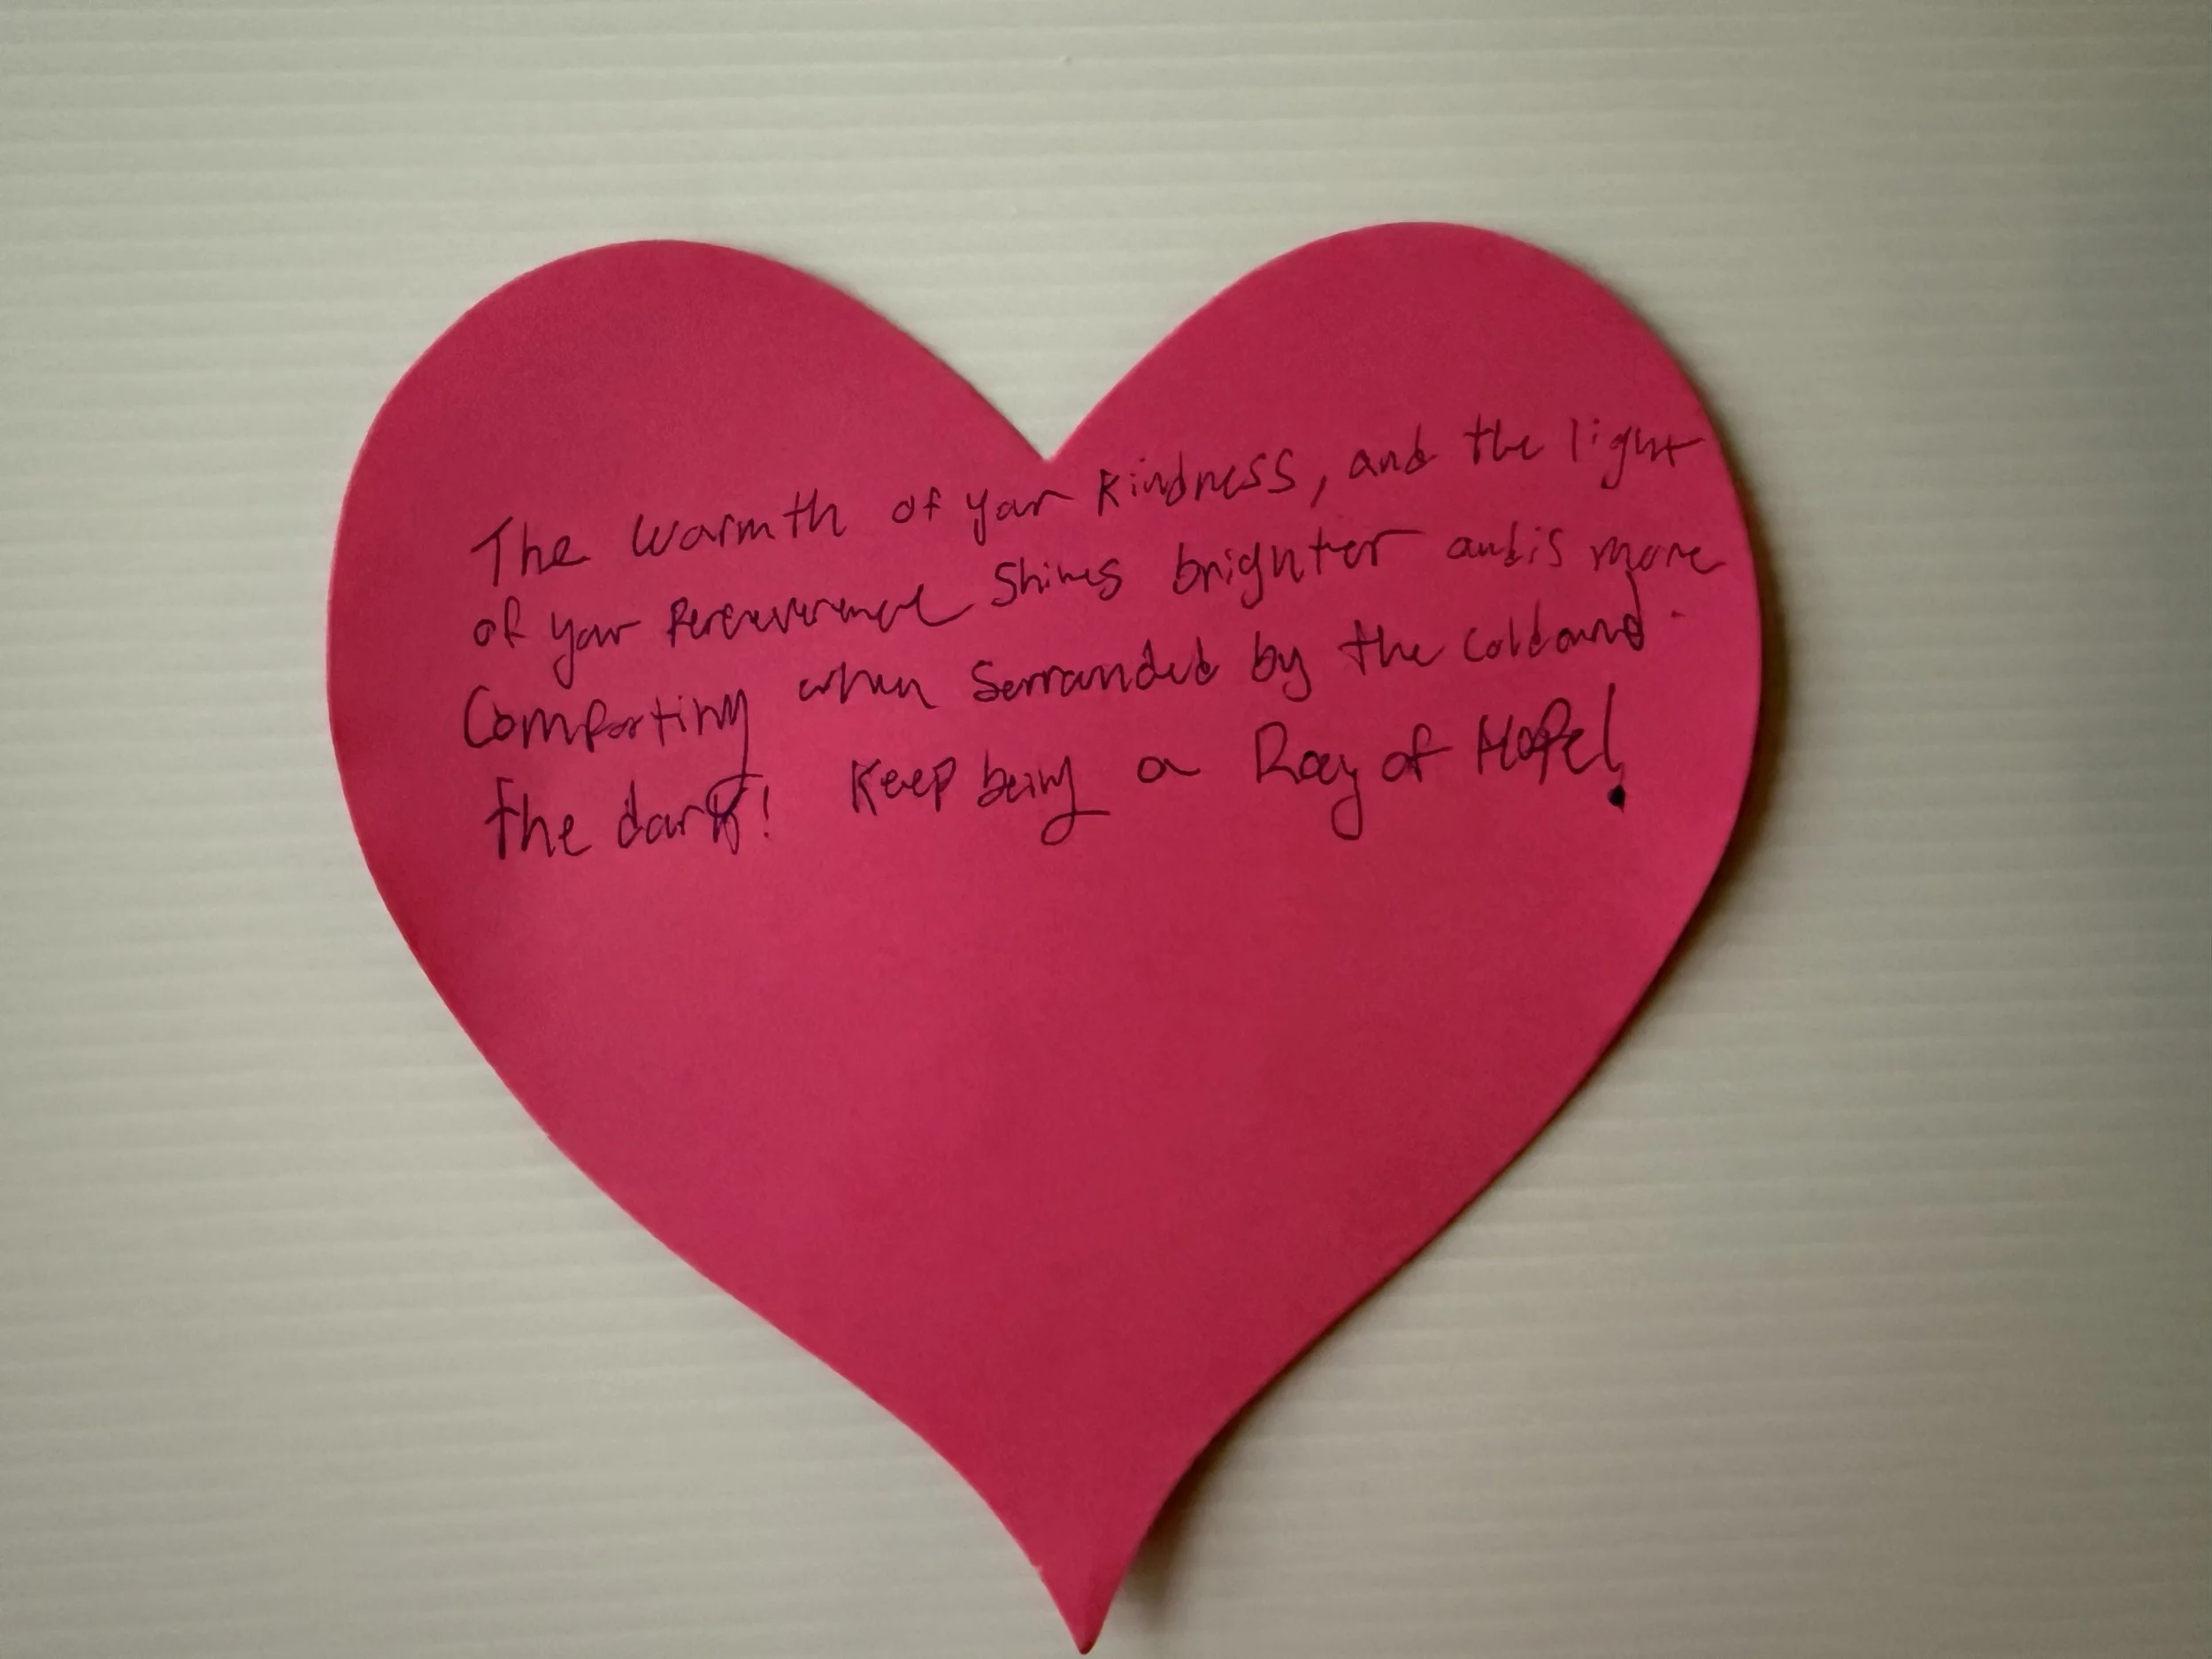 The warmth of your kindness, and the light
of your Perserverence Shines brighter and is more
Comforting when Serrounded by the cold and
the dark! Keep being a Ray of Hope!